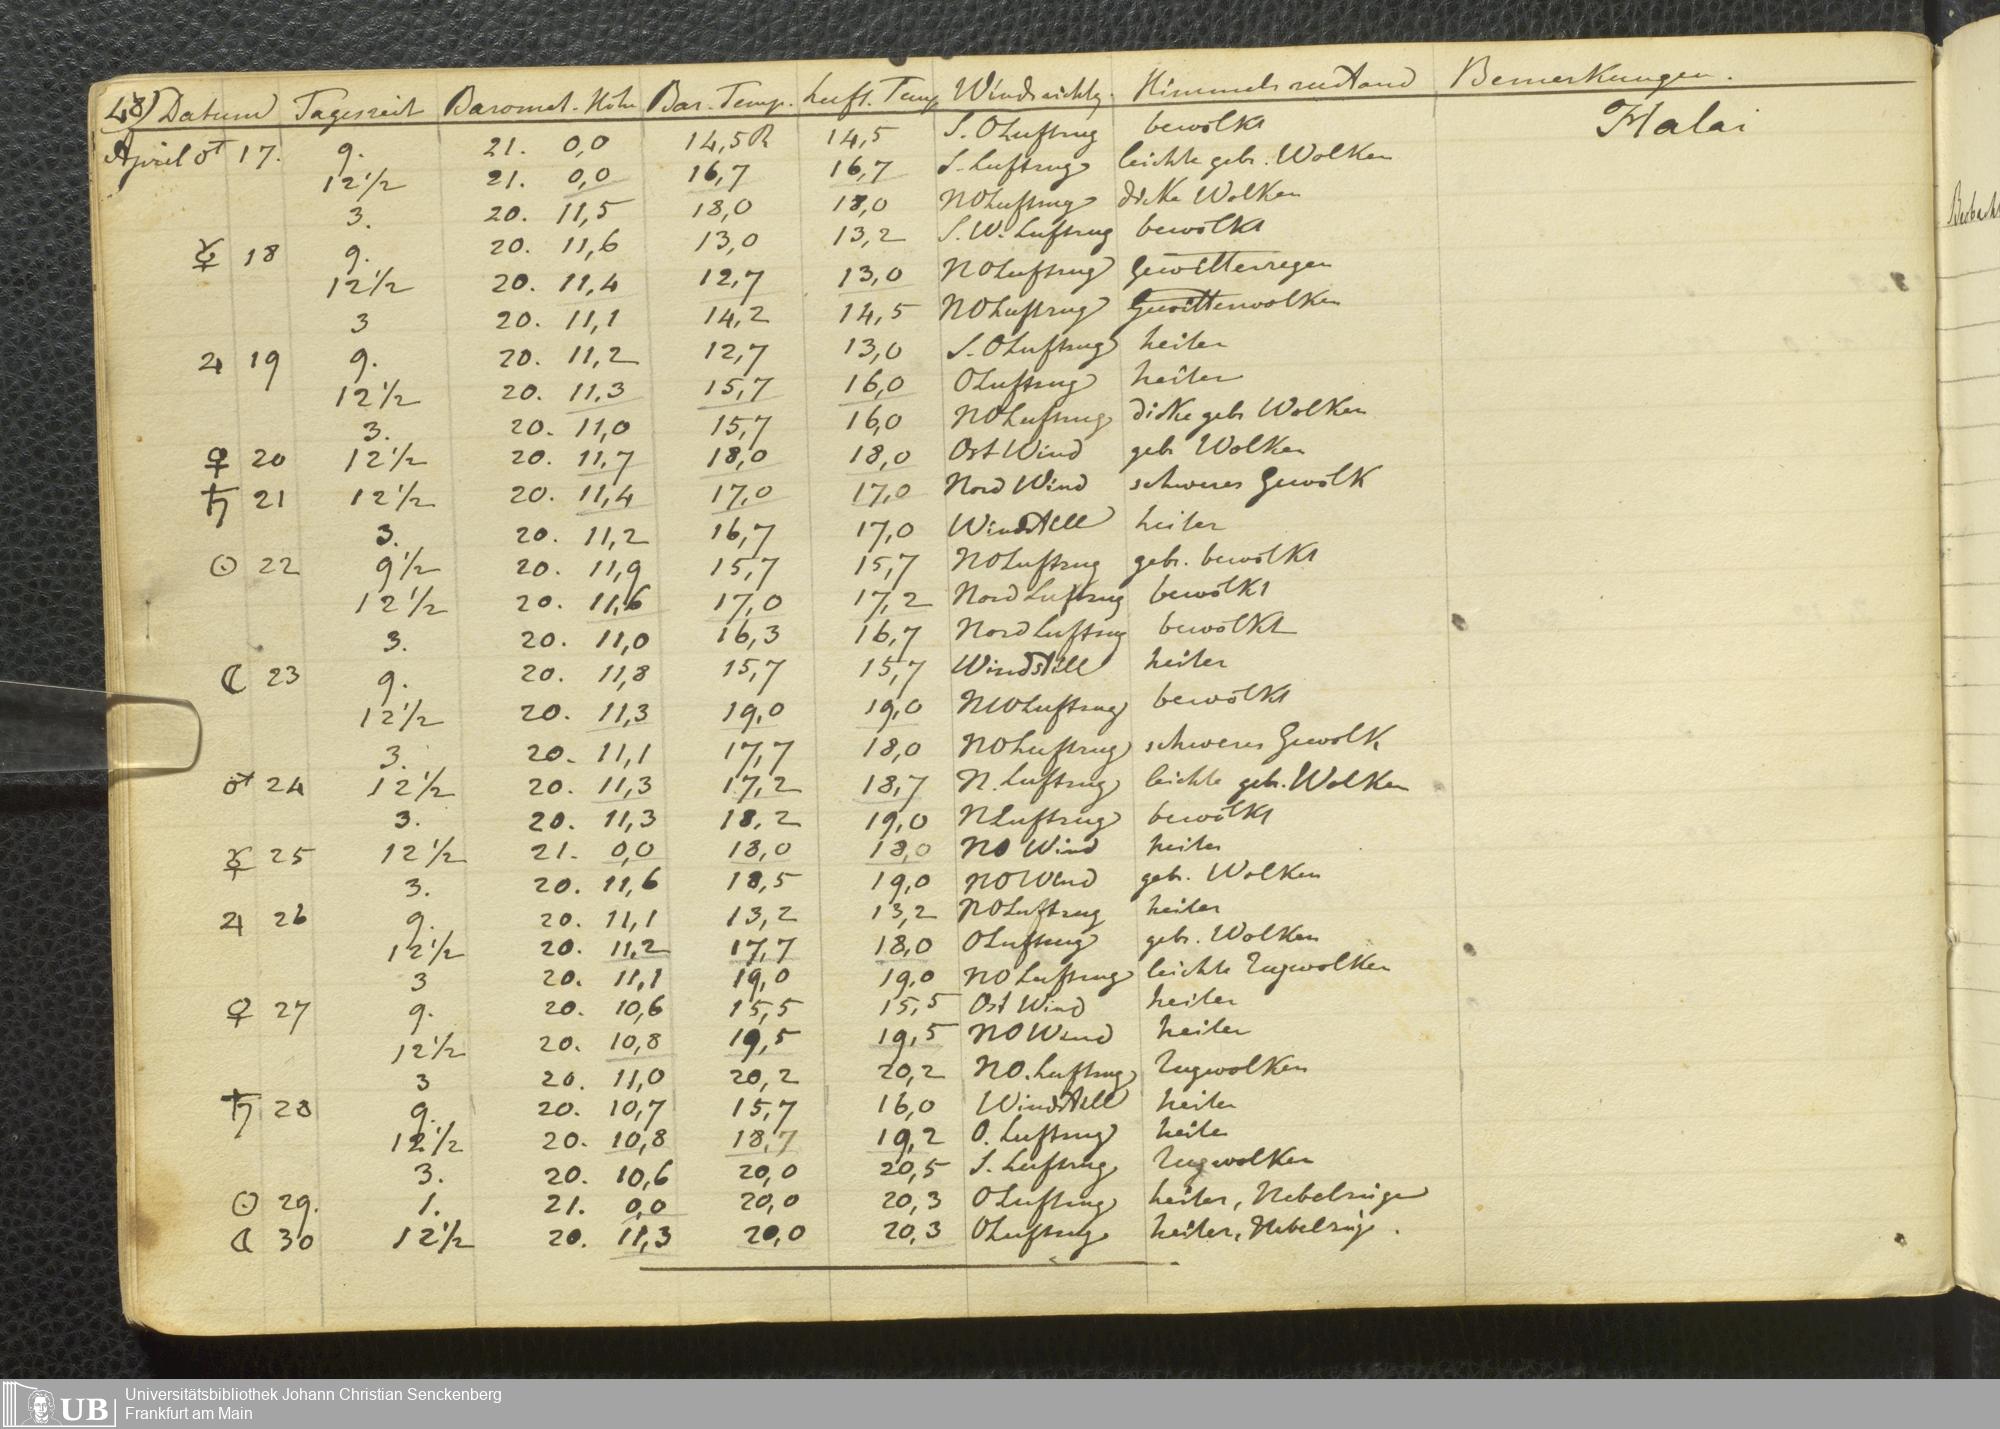 48) Datum Tageszeit Baromet. Höhe Bar. Temp. Luft. Temp. Windrichtg. Himmelszustand Bemerkungen.
April ♂ 17. 9. 21. 0,0 14,5 R 14,5 S. O Luftzug bewölkt Halai
12 1/2 21. 0,0 16,7 16,7 S. Luftzug leichte geb. Wolken
3. 20. 11,5 18,0 18,0 NO Luftzug dicke Wolken
☿ 18 9. 20. 11,6 13,0 13,2 S. W. Luftzug bewölkt
12 1/2 20. 11,4 12,7 13,0 NO Luftzug Gewitterregen
3 20. 11,1 14,2 14,5 NO Luftzug Gewitterwolken
♃ 19 9. 20. 11,2 12,7 13,0 S. O Luftzug heiter
12 1/2 20. 11,3 15,7 16,0 O Luftzug heiter
3. 20. 11,0 15,7 16,0 NO Luftzug dicke geb. Wolken
♀ 20 12 1/2 20. 11,7 18,0 18,0 Ost Wind geb Wolken
♄ 21 12 1/2 20. 11,4 17,0 17,0 Nord Wind schweres Gewölk
3. 20. 11,2 16,7 17,0 Windstill heiter
☉ 22 9 1/2 20. 11,9 15,7 15,7 NO Luftzug geb. bewölkt
12 1/2 20. 11,6 17,0 17,2 Nord Luftzug bewölkt
3. 20. 11,0 16,3 16,7 Nord Luftzug bewölkt
☾ 23 9. 20. 11,8 15,7 15,7 Windstill heiter
12 1/2 20. 11,3 19,0 19,0 NW Luftzug bewölkt
3. 20. 11,1 17,7 18,0 NO Luftzug schweres Gewölk
♂ 24 12 1/2 20. 11,3 17,2 18,7 N. Luftzug leichte geb. Wolken
3. 20. 11,3 18,2 19,0 N Luftzug bewölkt
☿ 25 12 1/2 21. 0,0 18,0 18,0 NO Wind heiter
3. 20. 11,6 18,5 19,0 NO Wind geb. Wolken
♃ 26 9. 20. 11,1 13,2 13,2 NO Luftzug heiter
12 1/2 20. 11,2 17,7 18,0 O Luftzug geb. Wolken
3 20. 11,1 19,0 19,0 NO Luftzug leichte Zugwolken
♀ 27 9. 20. 10,6 15,5 15,5 Ost Wind heiter
12 1/2 20. 10,8 19,5 19,5 NO Wind heiter
3 20. 11,0 20,2 20,2 NO. Luftzug Zugwolken
♄ 28 9. 20. 10,7 15,7 16,0 Windstill heiter
12 1/2 20. 10,8 18,7 19,2 O. Luftzug heiter
3. 20. 10,6 20,0 20,5 S. Luftzug Zugwolken
☉ 29. 1. 21. 0,0 20,0 20,3 O Luftzug heiter, Nebelzüge
☾ 30 12 1/2 20. 11,3 20,0 20,3 O Luftzug heiter, Nebelzüge.
UB Universitätsbibliothek Johann Christian Senckenberg
Frankfurt am Main